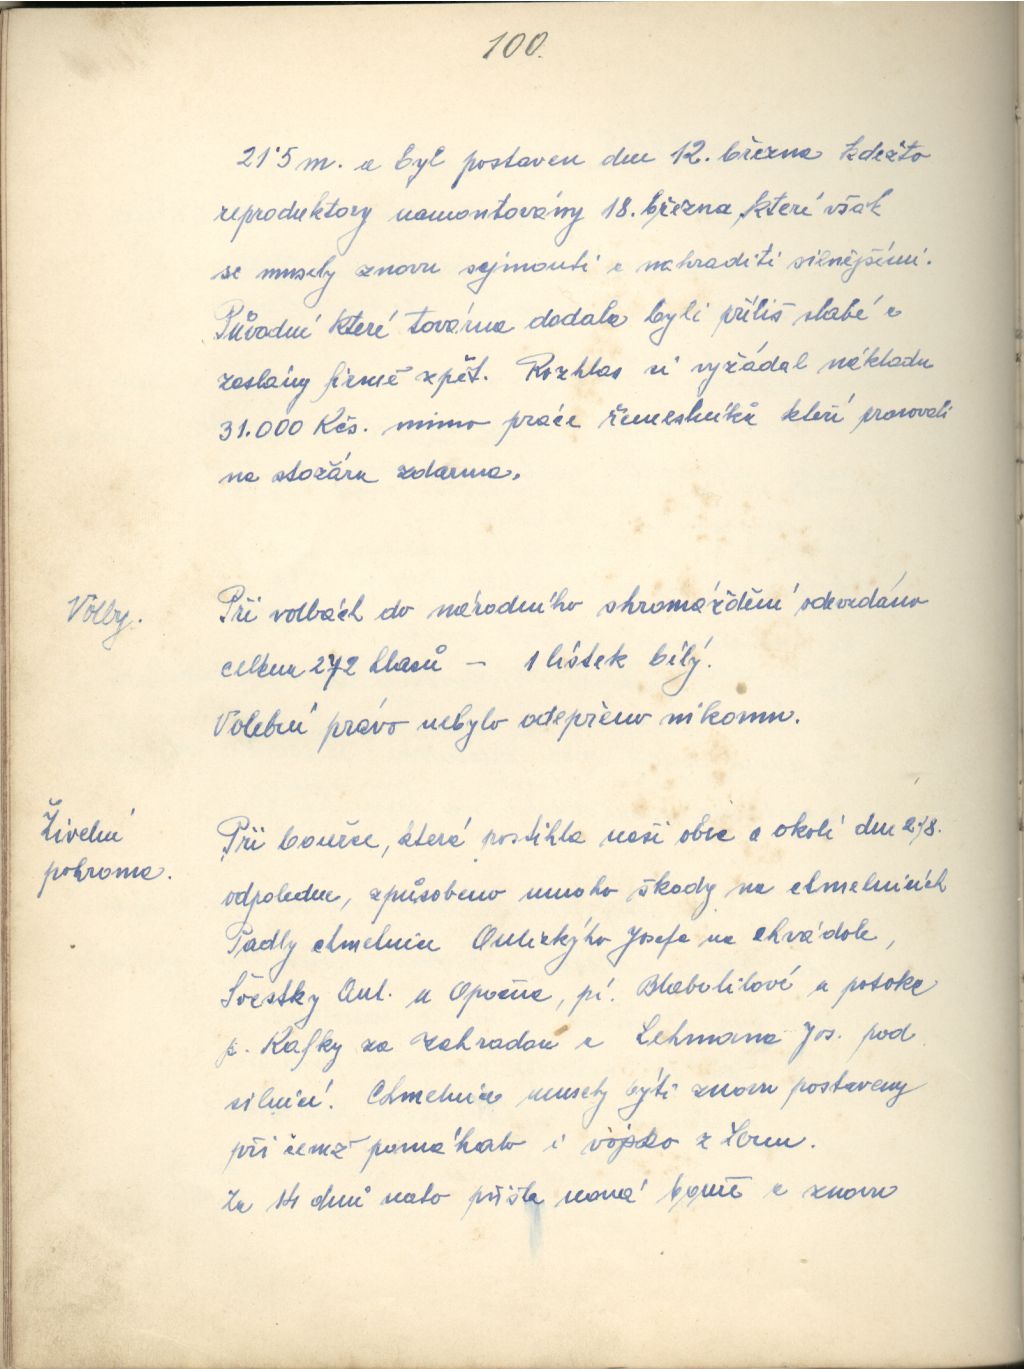 100.
21'5 m. a byl postaven dne 12. března kdežto
reproduktory namontovány 18. března, které však
se musely znovu sejmouti a nahraditi silnějšími.
Původní které továrna dodala byli příliš slabé a
zaslány firmě zpět. Rozhlas si vyžádal nákladu
31.000 Kčs. mimo práce řemeslníků kteří pracovali
na stožáru zdarma.
Volby.
Při volbách do národního shromáždění odevzdáno
celkem 272 hlasů — 1 lístek bílý.
Volební právo nebylo odepřeno nikomu.
Živelní
pohroma.
Při bouřce, která postihla naši obec a okolí dne 2/8.
odpoledne, způsobeno mnoho škody na chmelnicích
Padly chmelnice Josefa na chvádole,
ŠVestky Ant. u Opočna, pí. Blabolilové u potoka
p. Kafky za zahradou a Lehmana Jos. pod
silnicí. Chmelnice musely býti znovu postaveny
při čemž pomáhalo i vojsko z Žatce.
Za 14 dnů nato přišla nová bouře a znovu